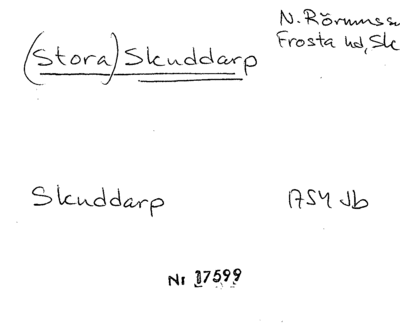 N. Rörums s
Frosta hd, Sk
(Stora) Skuddarp
Skuddarp
1754 Jb
Nr 17599